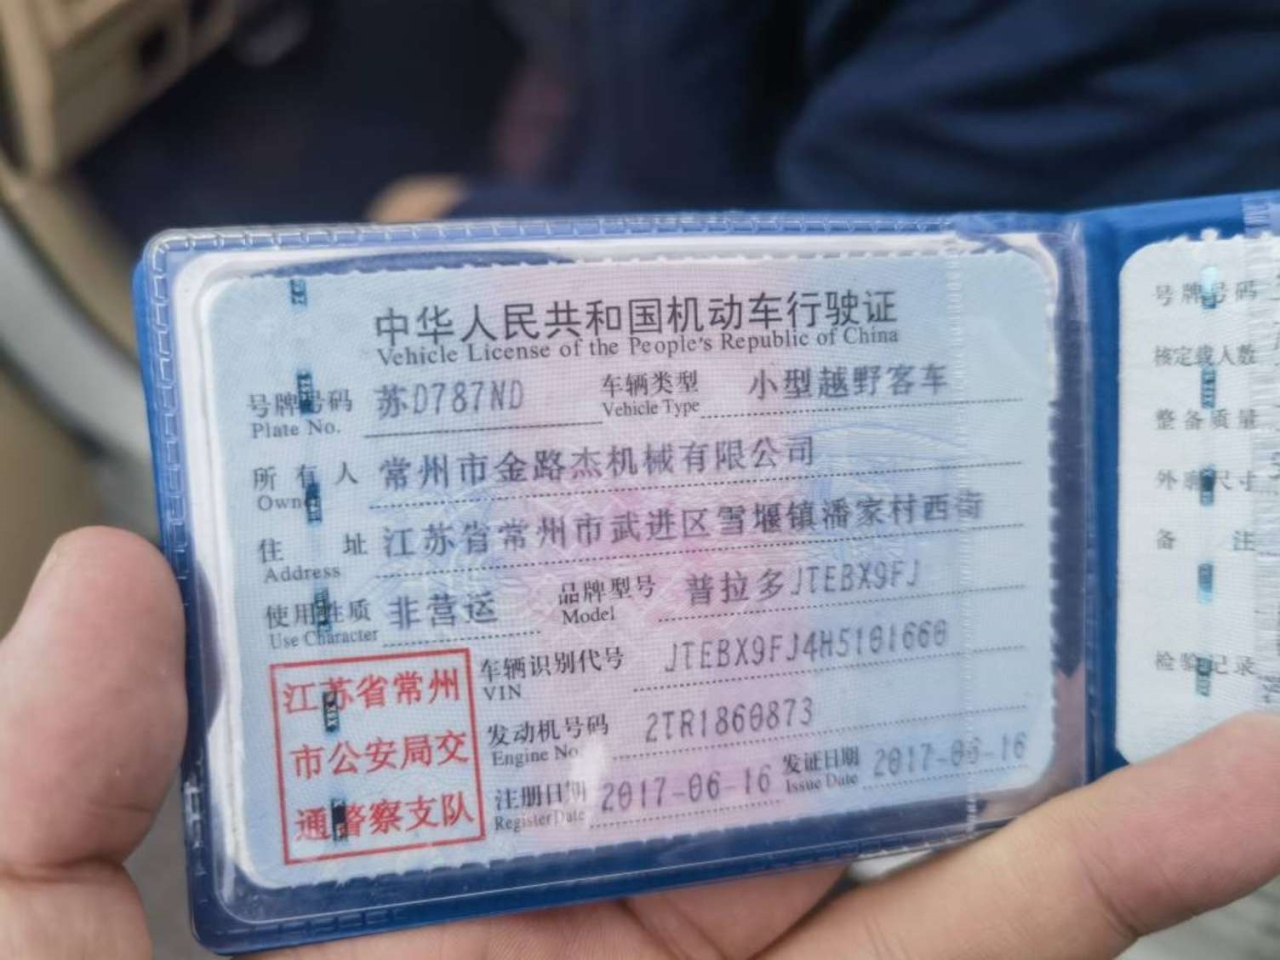 中华人民共和国机动车行驶证
Vehicle License of the People's Republic of China
号牌号码 苏D787ND 车辆类型 小型越野客车
Plate No. Vehicle Type
所有人 常州市金路杰机械有限公司
Owner
住址 江苏省常州市武进区雪堰镇潘家村西街
Address
使用性质 非营运 品牌型号 普拉多JTEBX9FJ
Use Character Model
车辆识别代号 JTEBX9FJ4H5101660
VIN
发动机号码 2TR1860873
Engine No.
注册日期 2017-06-16 发证日期 2017-06-16
Register Date Issue Date
江苏省常州
市公安局交
通警察支队
号牌号码
核定载人数
整备质量
外廓尺寸
备注
检验记录